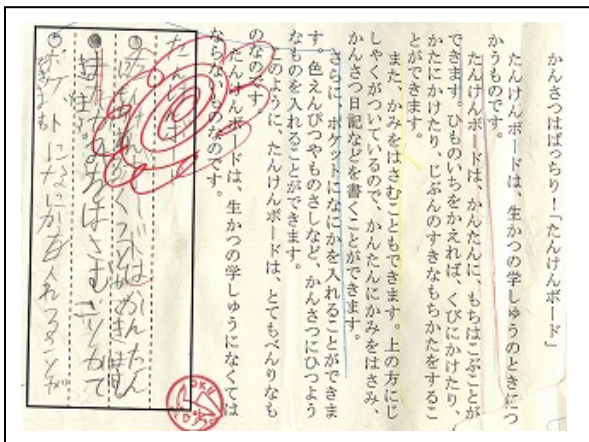 かんさつはばっちり！「たんけんボード」
たんけんボードは、生かつの学しゅうのときにつ
かうものです。
たんけんボードは、かんたんに、もちはこぶことが
できます。ひものいちをかえれば、くびにかけたり、
かたにかけたり、じぶんのすきなもちかたをするこ
とができます。
また、かみをはさむこともできます。上の方にじ
しゃくがついているので、かんたんにかみをはさみ、
かんさつ日記などを書くことができます。
さらに、ポケットになにかを入れることができま
す。色えんぴつやものさしなど、かんさつにひつよう
なものを入れることができます。
このように、たんけんボードは、とてもべんりなも
のなのです。
たんけんボードは、生かつの学しゅうになくては
ならないものなのです。
たんけんボー
はかんたん
はさむ
ポケットになにかを入れることが
できます